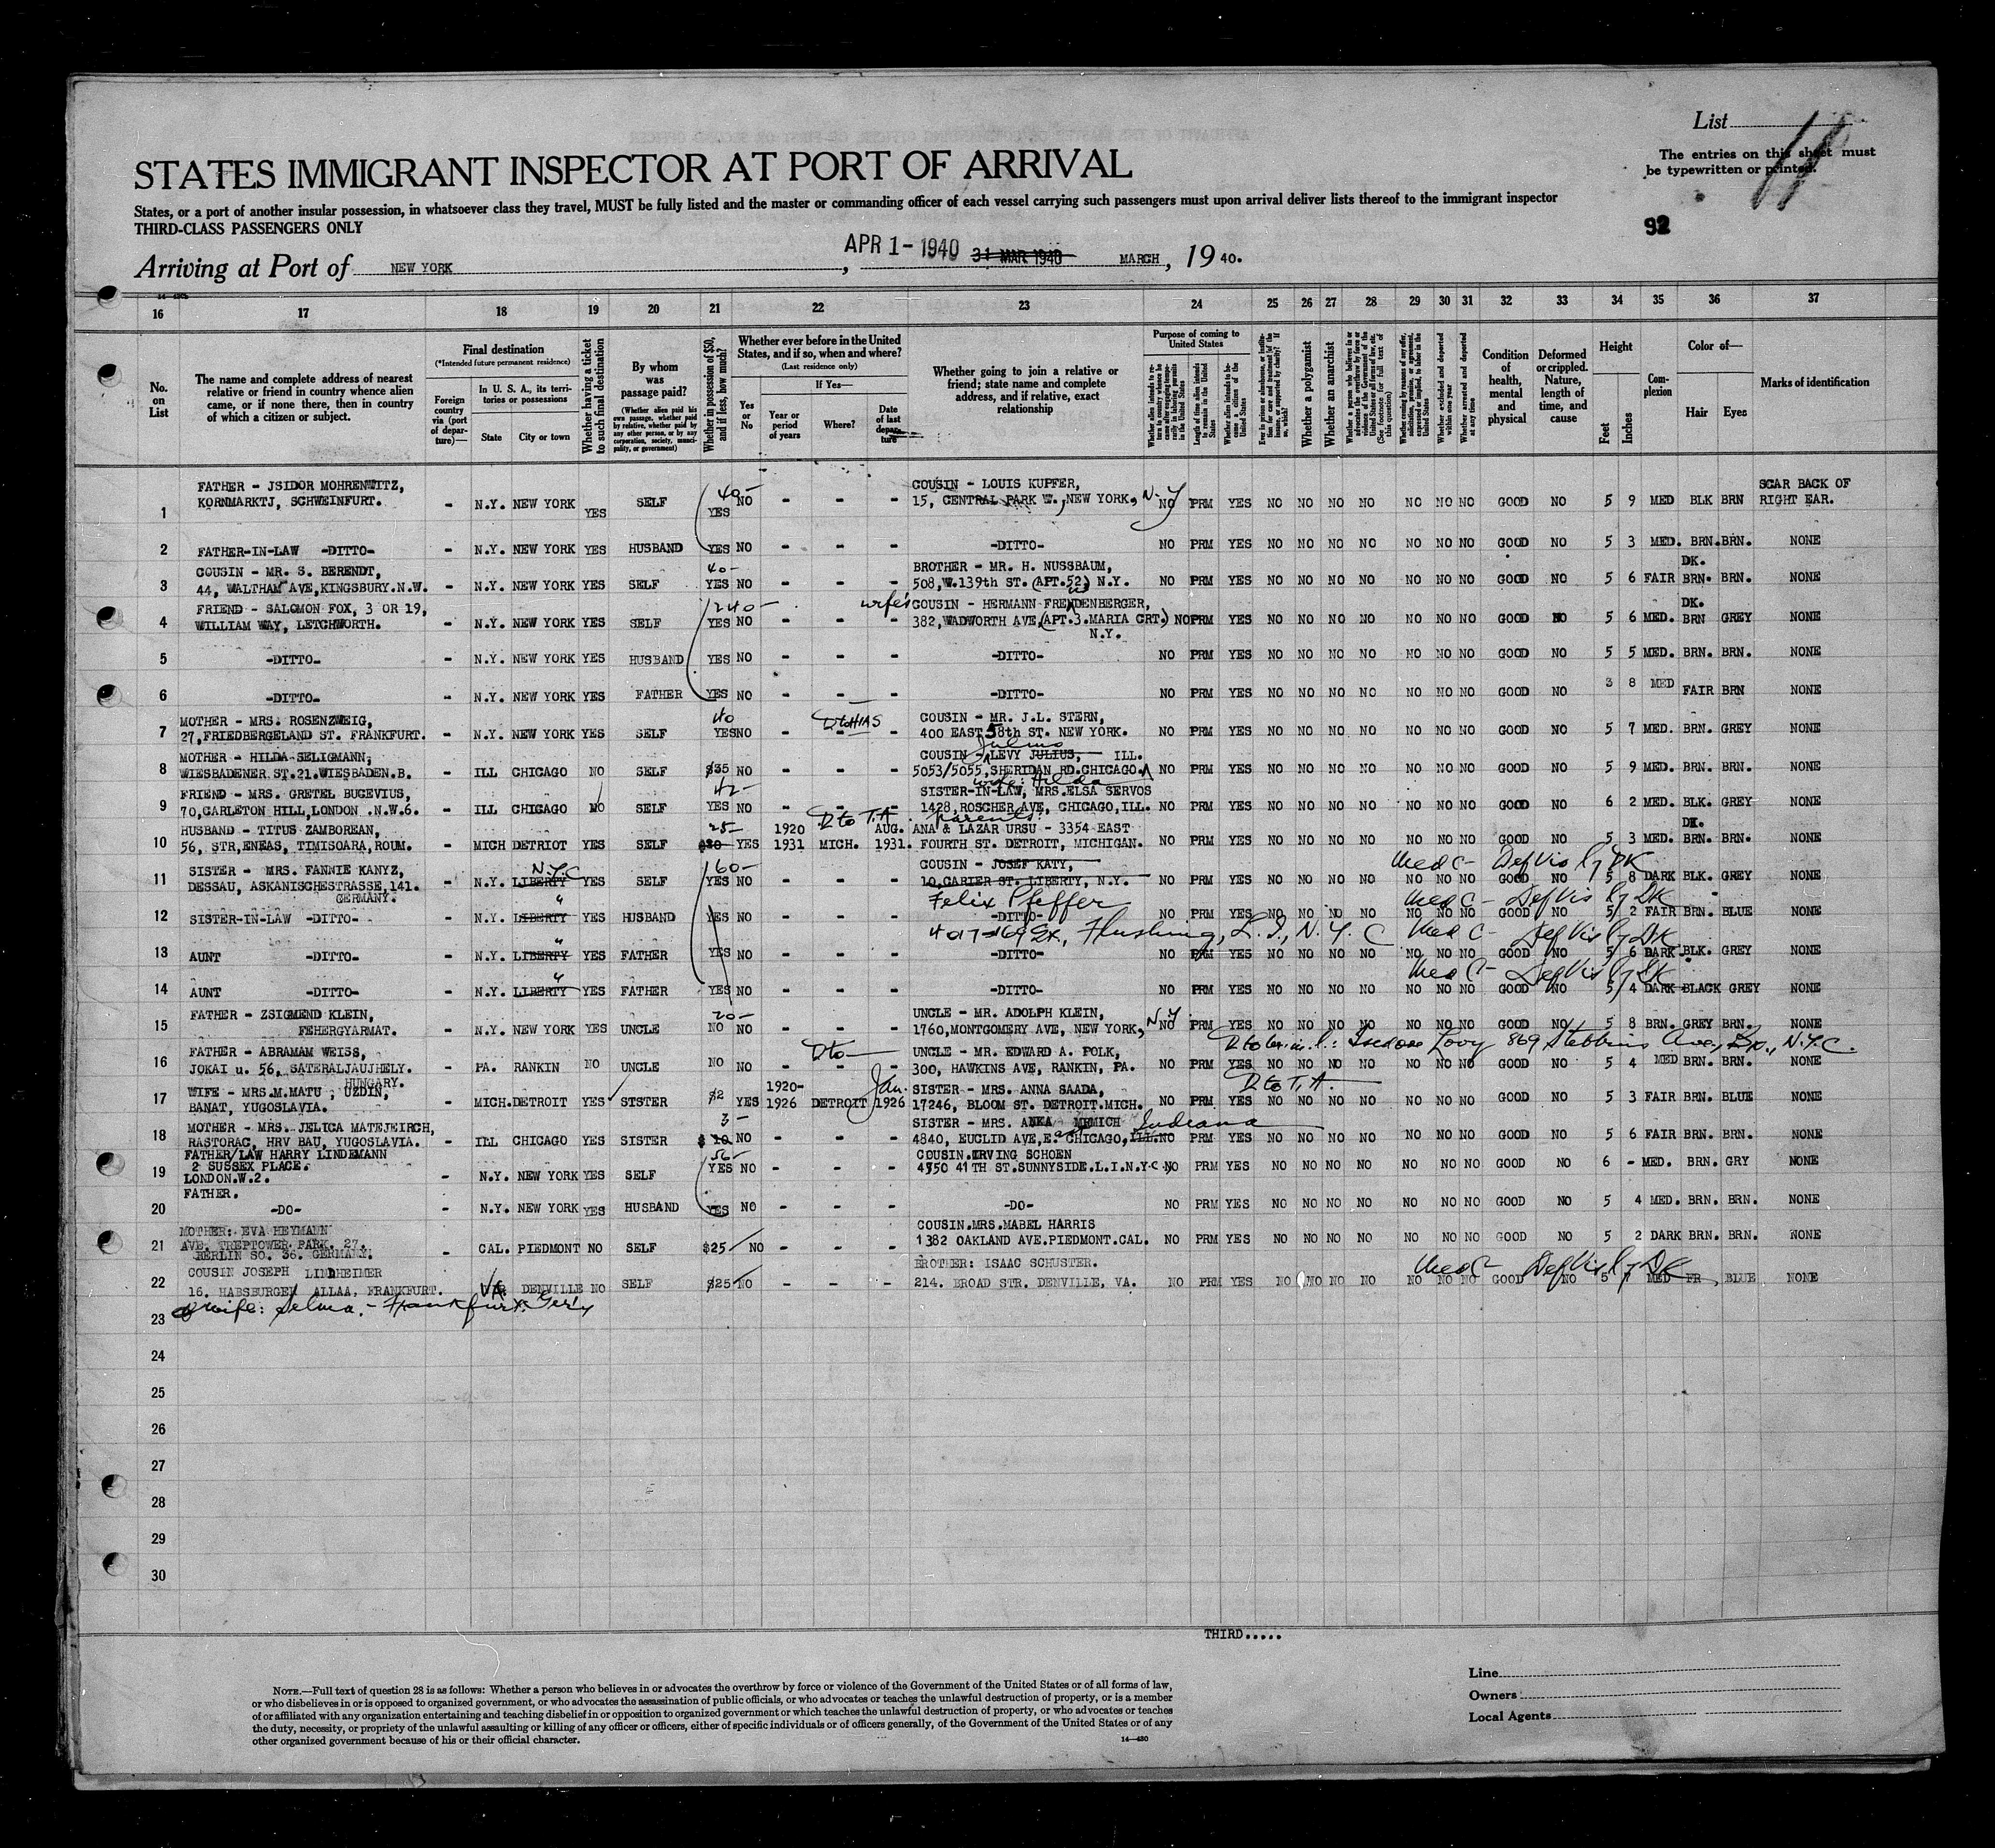 List
The entries on this sheet must
be typewritten or printed.
STATES IMMIGRANT INSPECTOR AT PORT OF ARRIVAL
States, or a port of another insular possession, in whatsoever class they travel, MUST be fully listed and the master or commanding officer of each vessel carrying such passengers must upon arrival deliver lists thereof to the immigrant inspector
THIRD-CLASS PASSENGERS ONLY
92
Arriving at Port of NEW YORK, APR 1 - 1940 31 MAR 1940 MARCH, 19 40.
16 17 18 19 20 21 22 23 24 25 26 27 28 29 30 31 32 33 34 35 36 37
No. on List
The name and complete address of nearest relative or friend in country whence alien came, or if none there, then in country of which a citizen or subject.
Final destination
(*Intended future permanent residence)
Foreign country via (port of departure)—
In U. S. A., its territories or possessions
State City or town
Whether having a ticket to such final destination
By whom was passage paid?
(Whether alien paid his own passage, whether paid by relative, whether paid by any other person, or by any corporation, society, municipality, or government)
Whether in possession of $50, and if less, how much?
Whether ever before in the United States, and if so, when and where?
(Last residence only)
Yes or No
If Yes—
Year or period of years
Where?
Date of last departure
Whether going to join a relative or friend; state name and complete address, and if relative, exact relationship
Purpose of coming to United States
Whether a polygamist
Whether an anarchist
Condition of health, mental and physical
Deformed or crippled. Nature, length of time, and cause
Height
Feet Inches
Complexion
Color of—
Hair Eyes
Marks of identification
1 FATHER - JSIDOR MOHRENWITZ, KORNMARKTJ, SCHWEINFURT. - N.Y. NEW YORK YES SELF 40- YES NO - - - COUSIN - LOUIS KUPFER, 15, CENTRAL PARK W., NEW YORK, N.Y NO PRM YES NO NO NO NO NO NO NO GOOD NO 5 9 MED BLK BRN SCAR BACK OF RIGHT EAR.
2 FATHER-IN-LAW -DITTO- - N.Y. NEW YORK YES HUSBAND YES NO - - - -DITTO- NO PRM YES NO NO NO NO NO NO NO GOOD NO 5 3 MED. BRN. BRN. NONE
3 COUSIN - MR. S. BERENDT, 44, WALTHAM AVE, KINGSBURY.N.W. - N.Y. NEW YORK YES SELF 40- YES NO - - - BROTHER - MR. H. NUSSBAUM, 508, W.139th ST. (APT.52) N.Y. NO PRM YES NO NO NO NO NO NO NO GOOD NO 5 6 FAIR DK. BRN. BRN. NONE
4 FRIEND - SALOMON FOX, 3 OR 19, WILLIAM WAY, LETCHWORTH. - N.Y. NEW YORK YES SELF 240- YES NO - - - wife's COUSIN - HERMANN FREUDENBERGER, 382, WADWORTH AVE, (APT.3.MARIA CRT.) N.Y. NO PRM YES NO NO NO NO NO NO NO GOOD NO 5 6 MED. DK. BRN GREY NONE
5 -DITTO- - N.Y. NEW YORK YES HUSBAND YES NO - - - -DITTO- NO PRM YES NO NO NO NO NO NO NO GOOD NO 5 5 MED. BRN. BRN. NONE
6 -DITTO- - N.Y. NEW YORK YES FATHER YES NO - - - -DITTO- NO PRM YES NO NO NO NO NO NO NO GOOD NO 3 8 MED FAIR BRN NONE
7 MOTHER - MRS. ROSENZWEIG, 27, FRIEDBERGELAND ST. FRANKFURT. - N.Y. NEW YORK YES SELF 40 YES NO - D to HIAS - - COUSIN - MR. J.L. STERN, 400 EAST 58th ST. NEW YORK. NO PRM YES NO NO NO NO NO NO NO GOOD NO 5 7 MED. BRN. GREY NONE
8 MOTHER - HILDA SELIGMANN, WIESBADENER ST.21.WIESBADEN.B. - ILL CHICAGO NO SELF $35 NO - - - COUSIN - LEVY JULIUS, Julius ILL. 5053/5055, SHERIDAN RD.CHICAGO. NO PRM YES NO NO NO NO NO NO NO GOOD NO 5 9 MED. BRN. BRN. NONE
9 FRIEND - MRS. GRETEL BUGEVIUS, 70, CARLETON HILL, LONDON .N.W.6. - ILL CHICAGO NO SELF 42- YES NO - - - wife: Hilda SISTER-IN-LAW, MRS.ELSA SERVOS 1428, ROSCHER AVE, CHICAGO, ILL. NO PRM YES NO NO NO NO NO NO NO GOOD NO 6 2 MED. BLK. GREY NONE
10 HUSBAND - TITUS ZAMBOREAN, 56, STR, ENEAS, TIMISOARA, ROUM. - MICH DETRIOT YES SELF 25- $30 YES 1920 1931 D to T.A. MICH. AUG. 1931. parents: ANA & LAZAR URSU - 3354 EAST FOURTH ST. DETROIT, MICHIGAN. NO PRM YES NO NO NO NO NO NO NO GOOD NO 5 3 MED. DK. BRN. BRN. NONE
11 SISTER - MRS. FANNIE KANYZ, DESSAU, ASKANISCHESTRASSE, 141. GERMANY. - N.Y. LIBERTY N.Y.C YES SELF 160- YES NO - - - COUSIN - JOSEF KATY, 10, CARIER ST. LIBERTY, N.Y. NO PRM YES NO NO NO NO NO NO NO Med C- Def Vis by DK GOOD NO 5 8 DARK BLK. GREY NONE
Felix Pfeffer
12 SISTER-IN-LAW -DITTO- - N.Y. LIBERTY " YES HUSBAND YES NO - - - -DITTO- NO PRM YES NO NO NO NO NO NO NO Med C- Def Vis by DK GOOD NO 5 2 FAIR BRN. BLUE NONE
4017-169 St., Flushing, L.I., N.Y.C
13 AUNT -DITTO- - N.Y. LIBERTY " YES FATHER YES NO - - - -DITTO- NO PRM YES NO NO NO NO NO NO NO Med C- Def Vis by DK GOOD NO 5 6 DARK BLK. GREY NONE
14 AUNT -DITTO- - N.Y. LIBERTY " YES FATHER YES NO - - - -DITTO- NO PRM YES NO NO NO NO NO NO NO Med C- Def Vis by DK GOOD NO 5 4 DARK BLACK GREY NONE
15 FATHER - ZSIGMEND KLEIN, FEHERGYARMAT. - N.Y. NEW YORK YES UNCLE 20- NO NO - - - UNCLE - MR. ADOLPH KLEIN, 1760, MONTGOMERY AVE, NEW YORK, N.Y NO PRM YES NO NO NO NO NO NO NO GOOD NO 5 8 BRN. GREY BRN. NONE
16 FATHER - ABRAMAM WEISS, JOKAI u. 56, SATERALJAUJHELY. HUNGARY. - PA. RANKIN NO UNCLE NO NO - D to - - UNCLE - MR. EDWARD A. POLK, 300, HAWKINS AVE, RANKIN, PA. 869 Stebbins Ave., Bx., N.Y.C. NO PRM YES NO NO NO NO NO NO NO GOOD NO 5 4 MED BRN. BRN. NONE
17 WIFE - MRS.M.MATU, UZDIN, BANAT, YUGOSLAVIA. - MICH. DETROIT YES SISTER $2 YES 1920- 1926 DETROIT Jan. 1926 SISTER - MRS. ANNA SAADA, 17246, BLOOM ST. DETROIT.MICH. D to T.A. NO PRM YES NO NO NO NO NO NO NO GOOD NO 5 3 FAIR BRN. BLUE NONE
18 MOTHER - MRS. JELICA MATEJEIRCH, RASTORAC, HRV BAU, YUGOSLAVIA. - ILL CHICAGO YES SISTER 3- $ 10 NO - - - SISTER - MRS. ANKA MEMICH 4840, EUCLID AVE, E. CHICAGO, ILL. Indiana NO PRM YES NO NO NO NO NO NO NO GOOD NO 5 6 FAIR BRN. BRN. NONE
19 FATHER/LAW HARRY LINDEMANN 2 SUSSEX PLACE. LONDON.W.2. - N.Y. NEW YORK YES SELF 56- YES NO - - - COUSIN.IRVING SCHOEN 4950 41TH ST.SUNNYSIDE.L.I.N.Y.C. NO PRM YES NO NO NO NO NO NO NO GOOD NO 6 - MED. BRN. GRY NONE
20 FATHER. -DO- - N.Y. NEW YORK YES HUSBAND YES NO - - - -DO- NO PRM YES NO NO NO NO NO NO NO GOOD NO 5 4 MED. BRN. BRN. NONE
21 MOTHER: EVA HEYMANN AVE. TREPTOWER PARK. 27. BERLIN SO. 36. GERMANY. - CAL. PIEDMONT NO SELF $25 NO - - - COUSIN.MRS.MABEL HARRIS 1382 OAKLAND AVE.PIEDMONT.CAL. NO PRM YES NO NO NO NO NO NO NO GOOD NO 5 2 DARK BRN. BRN. NONE
22 COUSIN JOSEPH LINDHEIMER 16, HABSBURGEN ALLAA, FRANKFURT. DENVILLE NO SELF $25 NO - - - BROTHER: ISAAC SCHUSTER. 214. BROAD STR. DENVILLE, VA. NO PRM YES NO NO NO NO NO NO NO Med C- Def Vis by DK GOOD NO 5 7 MED FR, BLUE NONE
23 wife: Selma, - Frankfurt Ger'y
24
25
26
27
28
29
30
THIRD.....
Line
Owners
Local Agents
NOTE.—Full text of question 28 is as follows: Whether a person who believes in or advocates the overthrow by force or violence of the Government of the United States or of all forms of law,
or who disbelieves in or is opposed to organized government, or who advocates the assassination of public officials, or who advocates or teaches the unlawful destruction of property, or is a member
of or affiliated with any organization entertaining and teaching disbelief in or opposition to organized government or which teaches the unlawful destruction of property, or who advocates or teaches
the duty, necessity, or propriety of the unlawful assaulting or killing of any officer or officers, either of specific individuals or of officers generally, of the Government of the United States or of any
other organized government because of his or their official character.
14—430